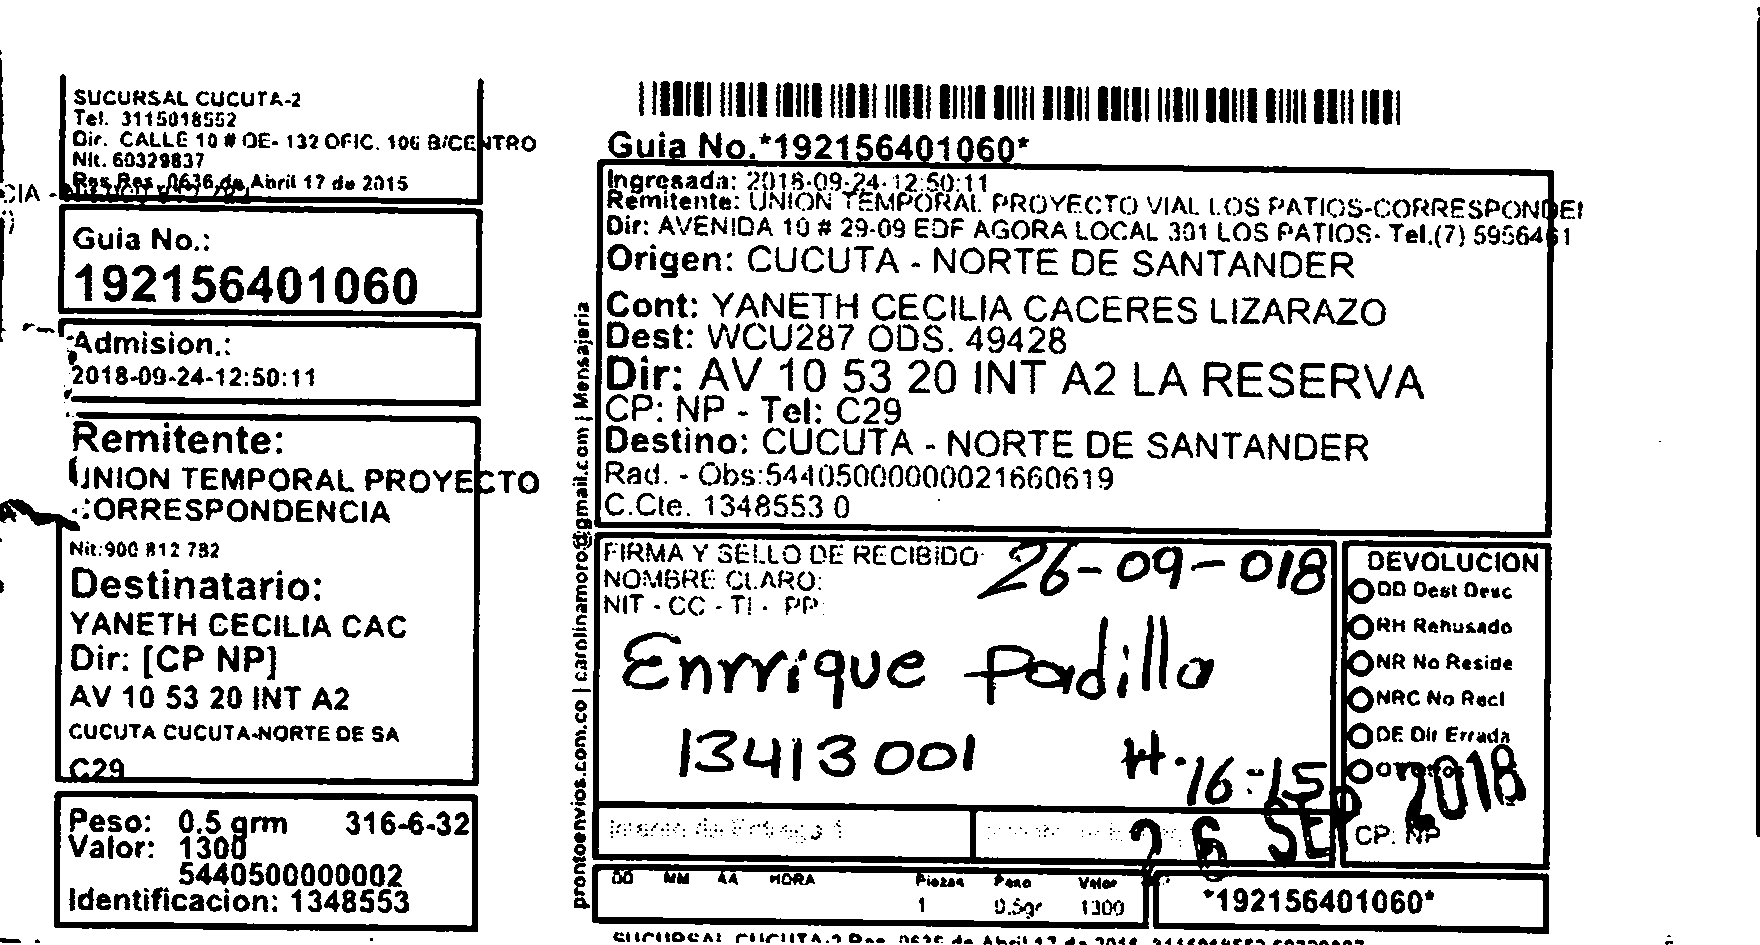 SUCURSAL CUCUTA-2
Tel. 3115018552
Dir. CALLE 10 # OE- 132 OFIC. 106 B/CENTRO
Nit. 60329837
Res Res. 0636 de Abril 17 de 2015
CIA -
Guia No.:
192156401060
Admision.:
2018-09-24-12:50:11
Remitente:
UNION TEMPORAL PROYECTO
CORRESPONDENCIA
Nit:900 812 782
Destinatario:
YANETH CECILIA CAC
Dir: [CP NP]
AV 10 53 20 INT A2
CUCUTA CUCUTA-NORTE DE SA
C29
Peso: 0.5 grm 316-6-32
Valor: 1300
5440500000002
Identificacion: 1348553
prontoenvios.com.co | carolinamoro@gmail.com | Mensajeria
Guia No.*192156401060*
Ingresada: 2018-09-24-12:50:11
Remitente: UNION TEMPORAL PROYECTO VIAL LOS PATIOS-CORRESPONDEI
Dir: AVENIDA 10 # 29-09 EDF AGORA LOCAL 301 LOS PATIOS- Tel.(7) 5956461
Origen: CUCUTA - NORTE DE SANTANDER
Cont: YANETH CECILIA CACERES LIZARAZO
Dest: WCU287 ODS. 49428
Dir: AV 10 53 20 INT A2 LA RESERVA
CP: NP - Tel: C29
Destino: CUCUTA - NORTE DE SANTANDER
Rad. - Obs:54405000000021660619
C.Cte. 1348553 0
FIRMA Y SELLO DE RECIBIDO
NOMBRE CLARO:
NIT - CC - TI - PP:
26-09-018
Enrrique Padilla
13413001 H.16-15
26 SEP 2018
DEVOLUCION
DD Dest Desc
RH Rehusado
NR No Reside
NRC No Recl
DE Dir Errada
CP: NP
Intento de Entrega 1
DD MM AA HORA Piezas Peso Valor
1 0.5gr 1300
*192156401060*
SUCURSAL CUCUTA-2 Res. 0636 de Abril 17 de 2015